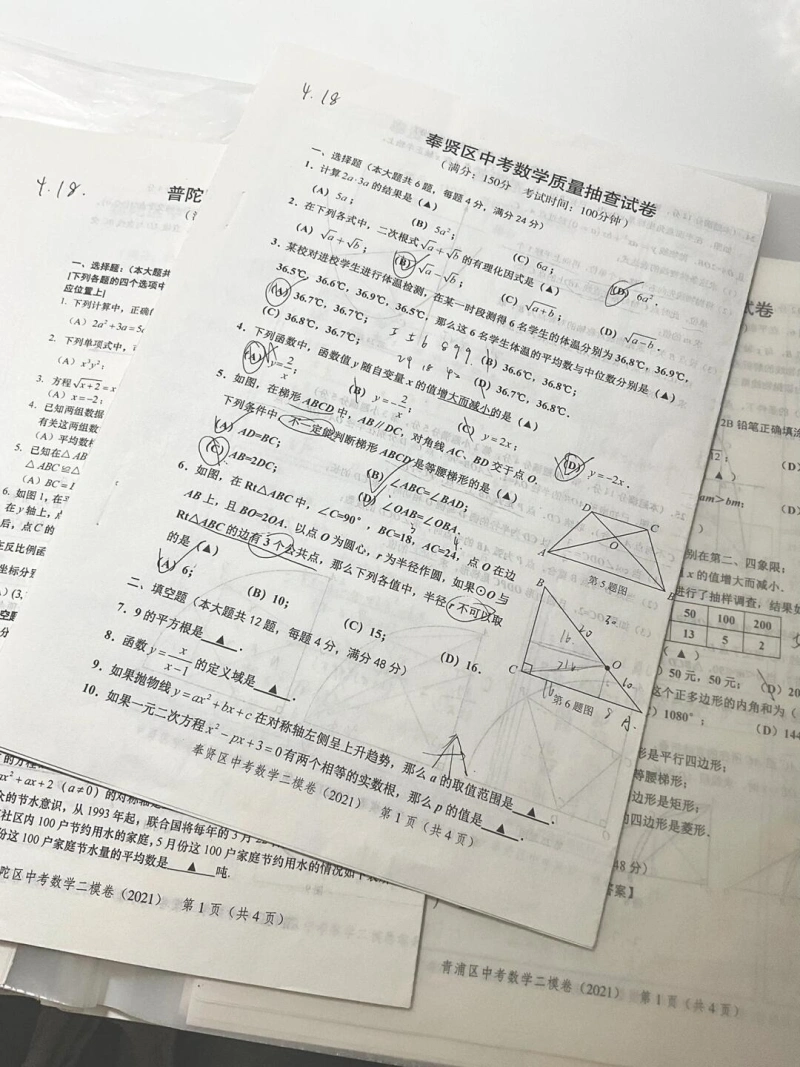 4.18
奉贤区中考数学质量抽查试卷
（满分：150分 考试时间：100分钟）
一、选择题（本大题共6题，每题4分，满分24分）
1．计算2a·3a的结果是（▲）
（A）5a； （B）5a²； （C）6a； （D）6a²．
2．在下列各式中，二次根式√a+√b的有理化因式是（▲）
（A）√a+√b； （B）√a−√b； （C）√a+b； （D）√a−b．
3．某校对进校学生进行体温检测，在某一时段测得6名学生的体温分别为36.8℃，36.9℃，
36.5℃，36.6℃，36.9℃，36.5℃，那么这6名学生体温的平均数与中位数分别是（▲）
（A）36.7℃，36.7℃； （B）36.6℃，36.8℃；
（C）36.8℃，36.7℃； （D）36.7℃，36.8℃．
4．下列函数中，函数值y随自变量x的值增大而减小的是（▲）
（A）y=2/x； （B）y=−2/x； （C）y=2x； （D）y=−2x．
5．如图，在梯形ABCD中，AB∥DC，对角线AC、BD交于点O．
下列条件中，不一定能判断梯形ABCD是等腰梯形的是（▲）
（A）AD=BC； （B）∠ABC=∠BAD；
（C）AB=2DC； （D）∠OAB=∠OBA．
6．如图，在Rt△ABC中，∠C=90°，BC=18，AC=24，点O在边
AB上，且BO=2OA．以点O为圆心，r为半径作圆，如果⊙O与
Rt△ABC的边有3个公共点，那么下列各值中，半径r不可以取
的是（▲）
（A）6； （B）10； （C）15； （D）16．
D C
O
A B
第5题图
B
C O
A
第6题图
二、填空题（本大题共12题，每题4分，满分48分）
7．9的平方根是▲．
8．函数y=x/(x−1)的定义域是▲．
9．如果抛物线y=ax²+bx+c在对称轴左侧呈上升趋势，那么a的取值范围是▲．
10．如果一元二次方程x²−px+3=0有两个相等的实数根，那么p的值是▲．
奉贤区中考数学二模卷（2021） 第1页（共4页）
4.18.
普陀
一、选择题：（本大题共
[下列各题的四个选项中
应位置上]
1．下列计算中，正确
（A）2a²+3a=5
2．下列单项式中，
（A）x³y²；
3．方程√x+2=x
（A）x=−2；
4．已知两组数据
有关这两组数
（A）平均数
5．已知在△AB
△ABC≌△
（A）BC=
6．如图1，在平
在y轴上，点
后，点C的
在反比例函
坐标分别
ax²+ax+2（a≠0）的对称轴是
众的节水意识，从1993年起，联合国将每年的3月
社区内100户节约用水的家庭，5月份这100户家庭节约用水的情况如下表
份这100户家庭节水量的平均数是▲吨.
陀区中考数学二模卷（2021） 第1页（共4页）
试卷
2B铅笔正确填涂
am>bm；
别在第二、四象限；
x的值增大而减小．
进行了抽样调查，结果如
50 100 200
13 5 2
（▲）
50元，50元； （D）20
这个正多边形的内角和为（
1080°； （D）144
形是平行四边形；
等腰梯形；
边形是矩形；
的四边形是菱形．
48分）
答案】
青浦区中考数学二模卷（2021） 第1页（共4页）